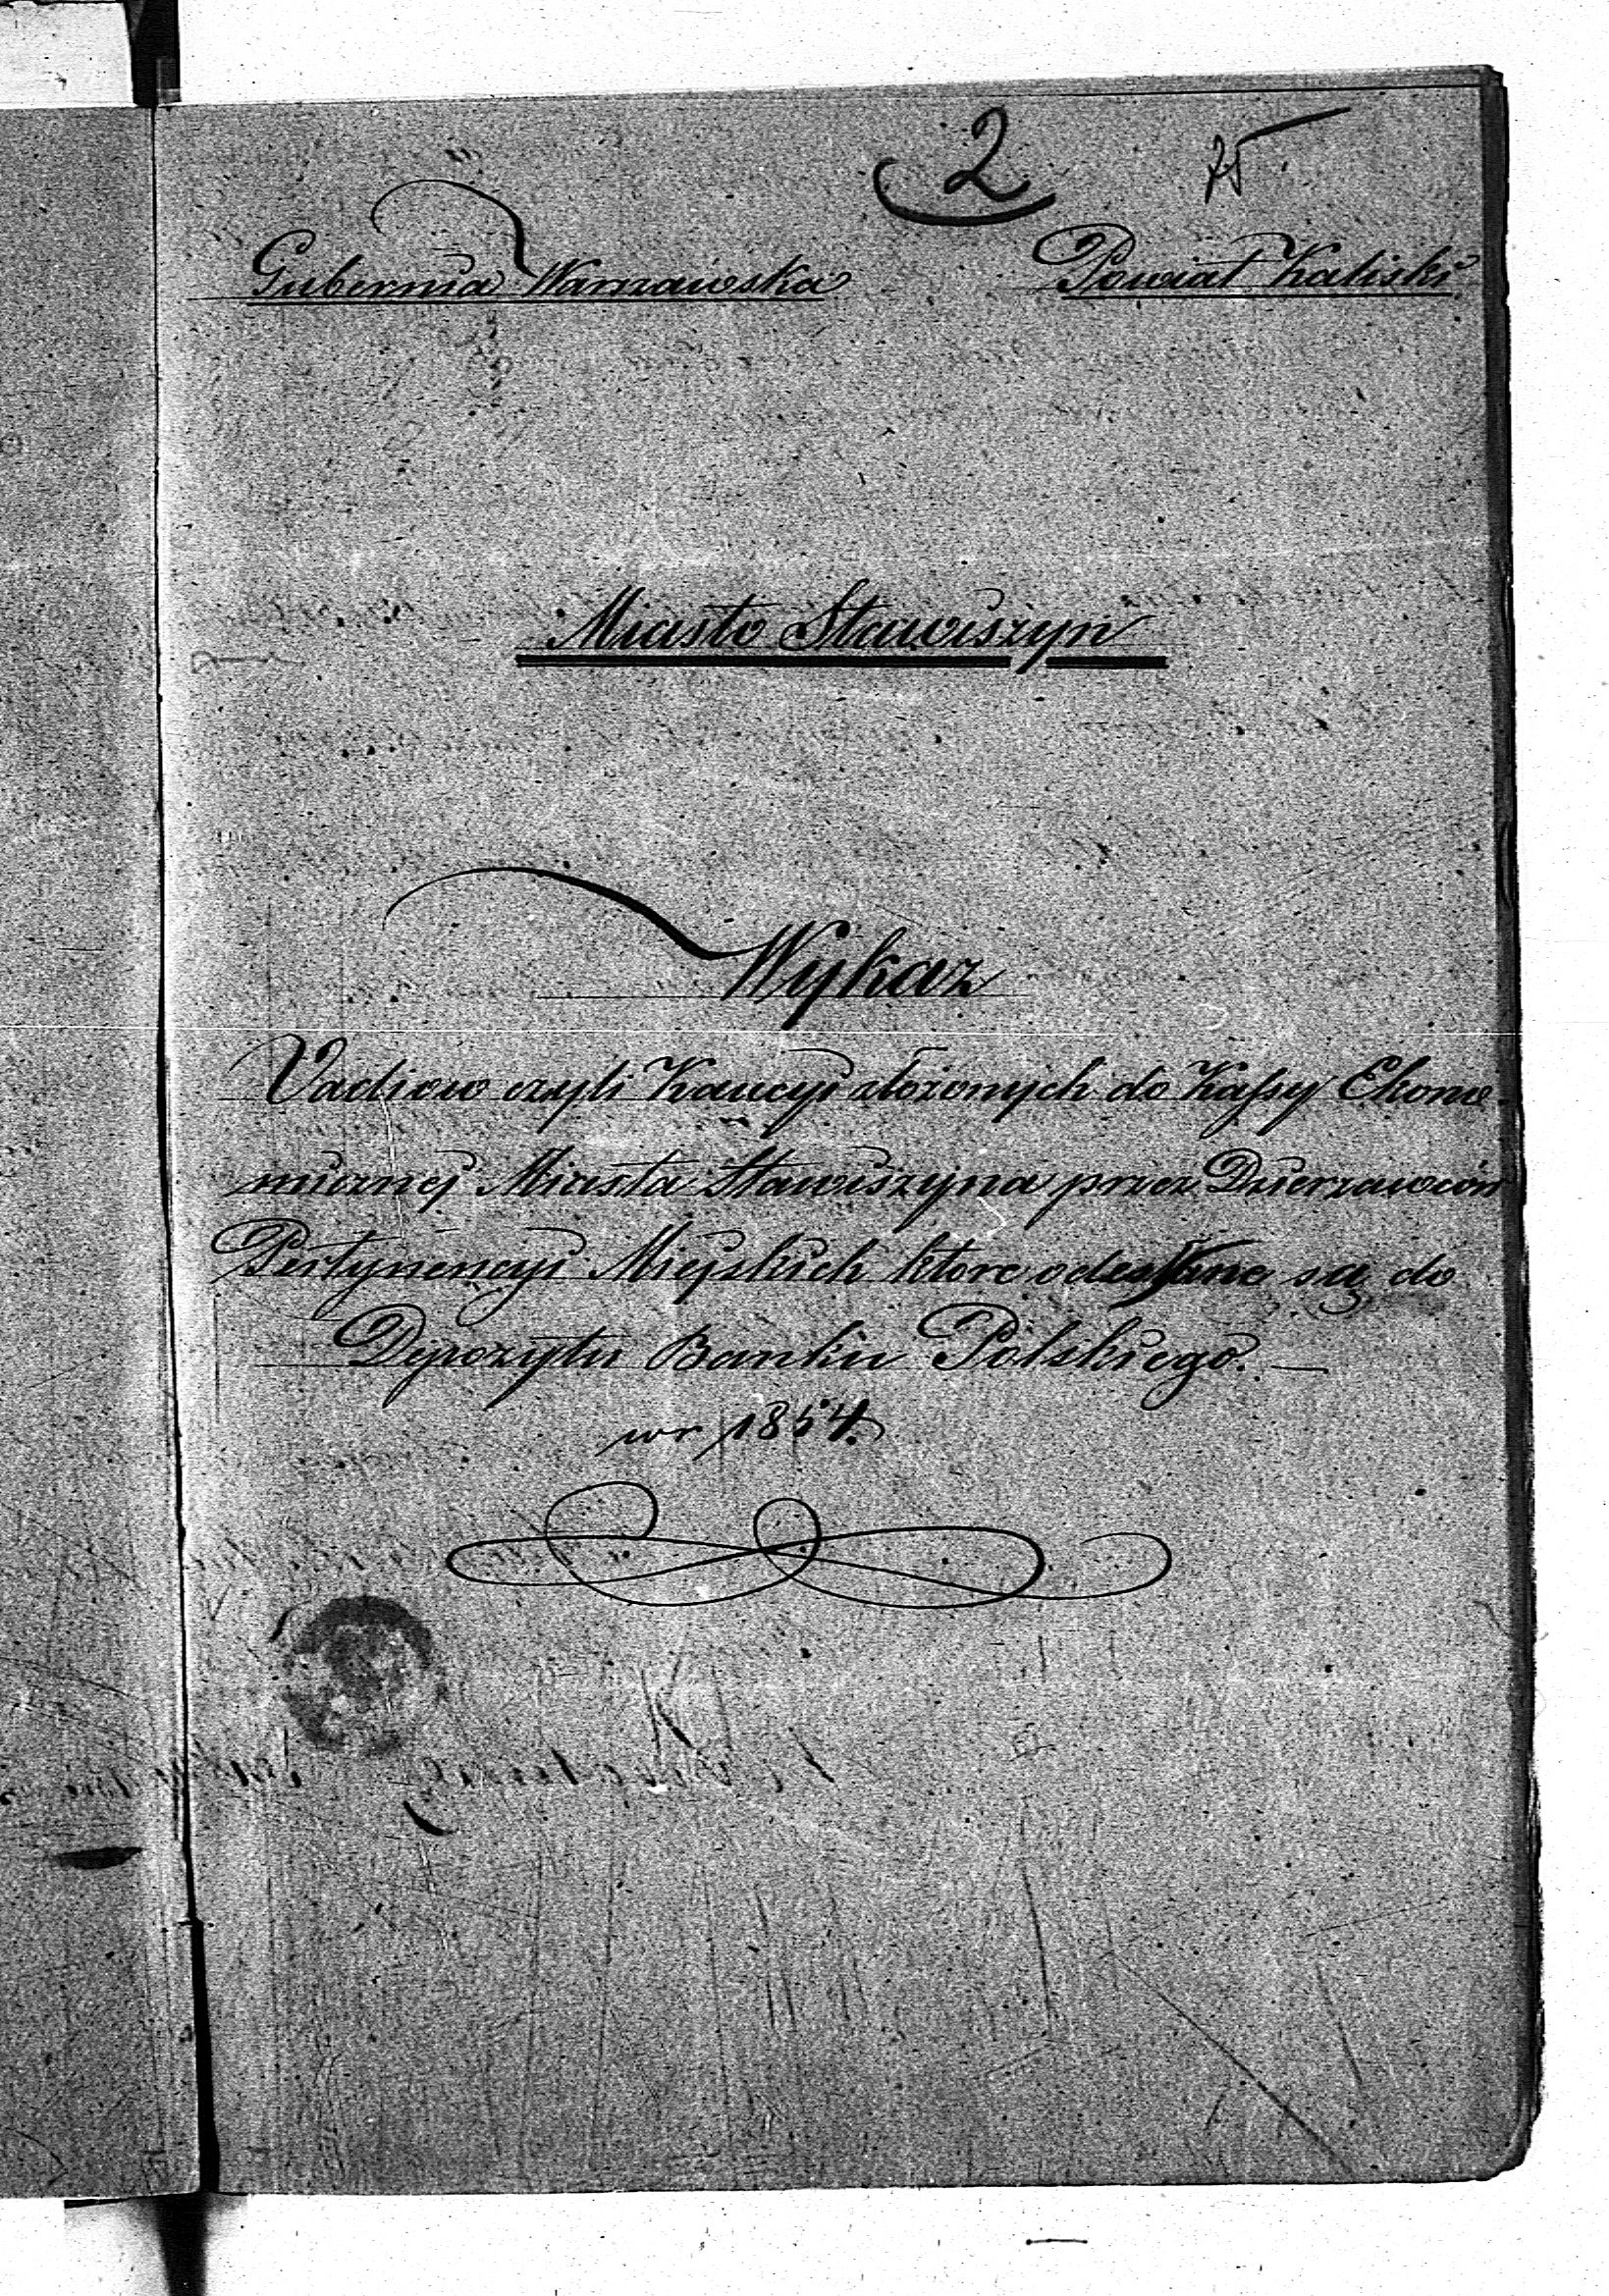 2
75
Gubernia Warszawska Powiat Kaliski
Miasto Stawiszyn
Wykaz
Vadiow czyli Kaucyi złożonych do Kassy Ekono-
micznej Miasta Stawiszyna przez Dzierzawców
Pertynencyi Miejskich ktore odesłane są do
Depozytu Banku Polskiego. —
w r 1854.